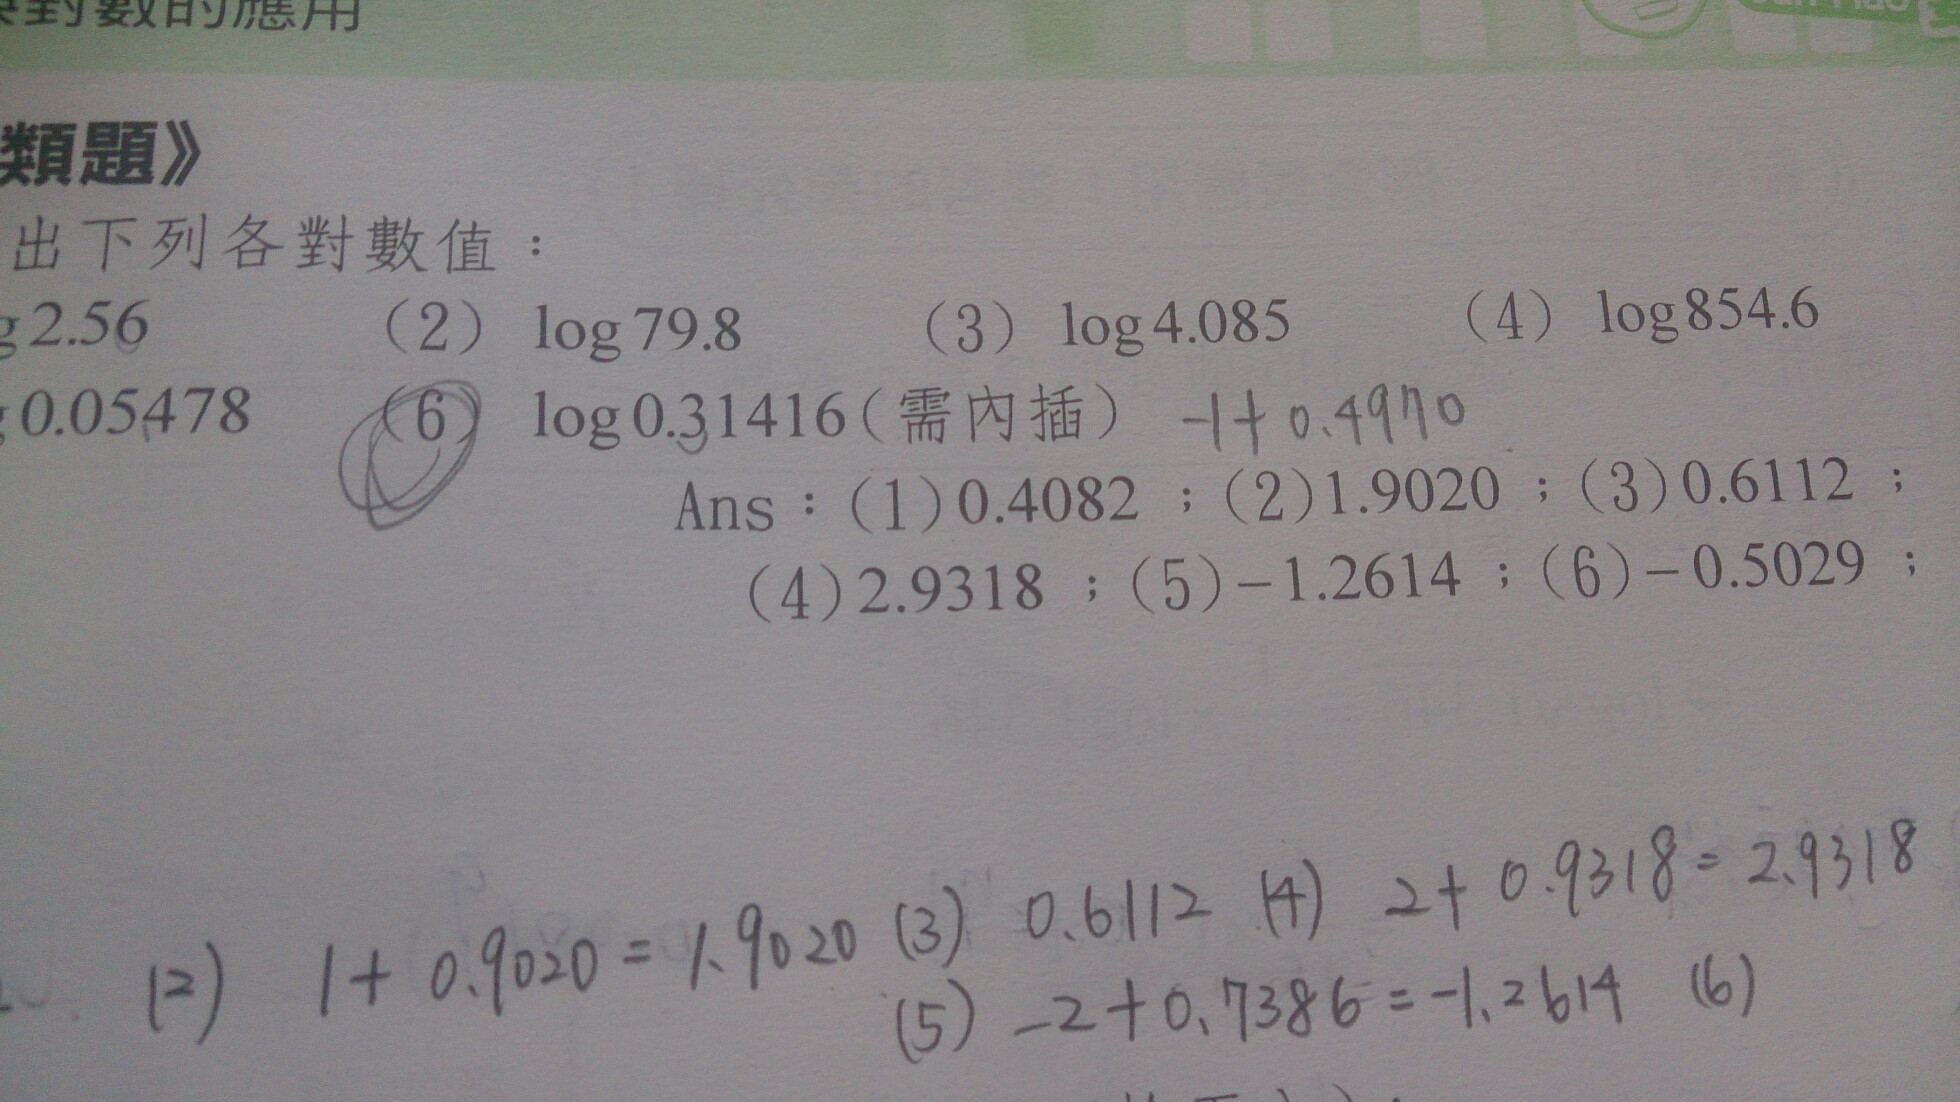 對數的應用
類題》
出下列各對數值：
g 2.56 (2) log 79.8 (3) log 4.085 (4) log 854.6
g 0.05478 (6) log 0.31416（需內插） -1+0.4970
Ans：(1)0.4082；(2)1.9020；(3)0.6112；
(4)2.9318；(5)−1.2614；(6)−0.5029；
(2) 1+0.9020=1.9020 (3) 0.6112 (4) 2+0.9318=2.9318
(5) -2+0.7386=-1.2614 (6)